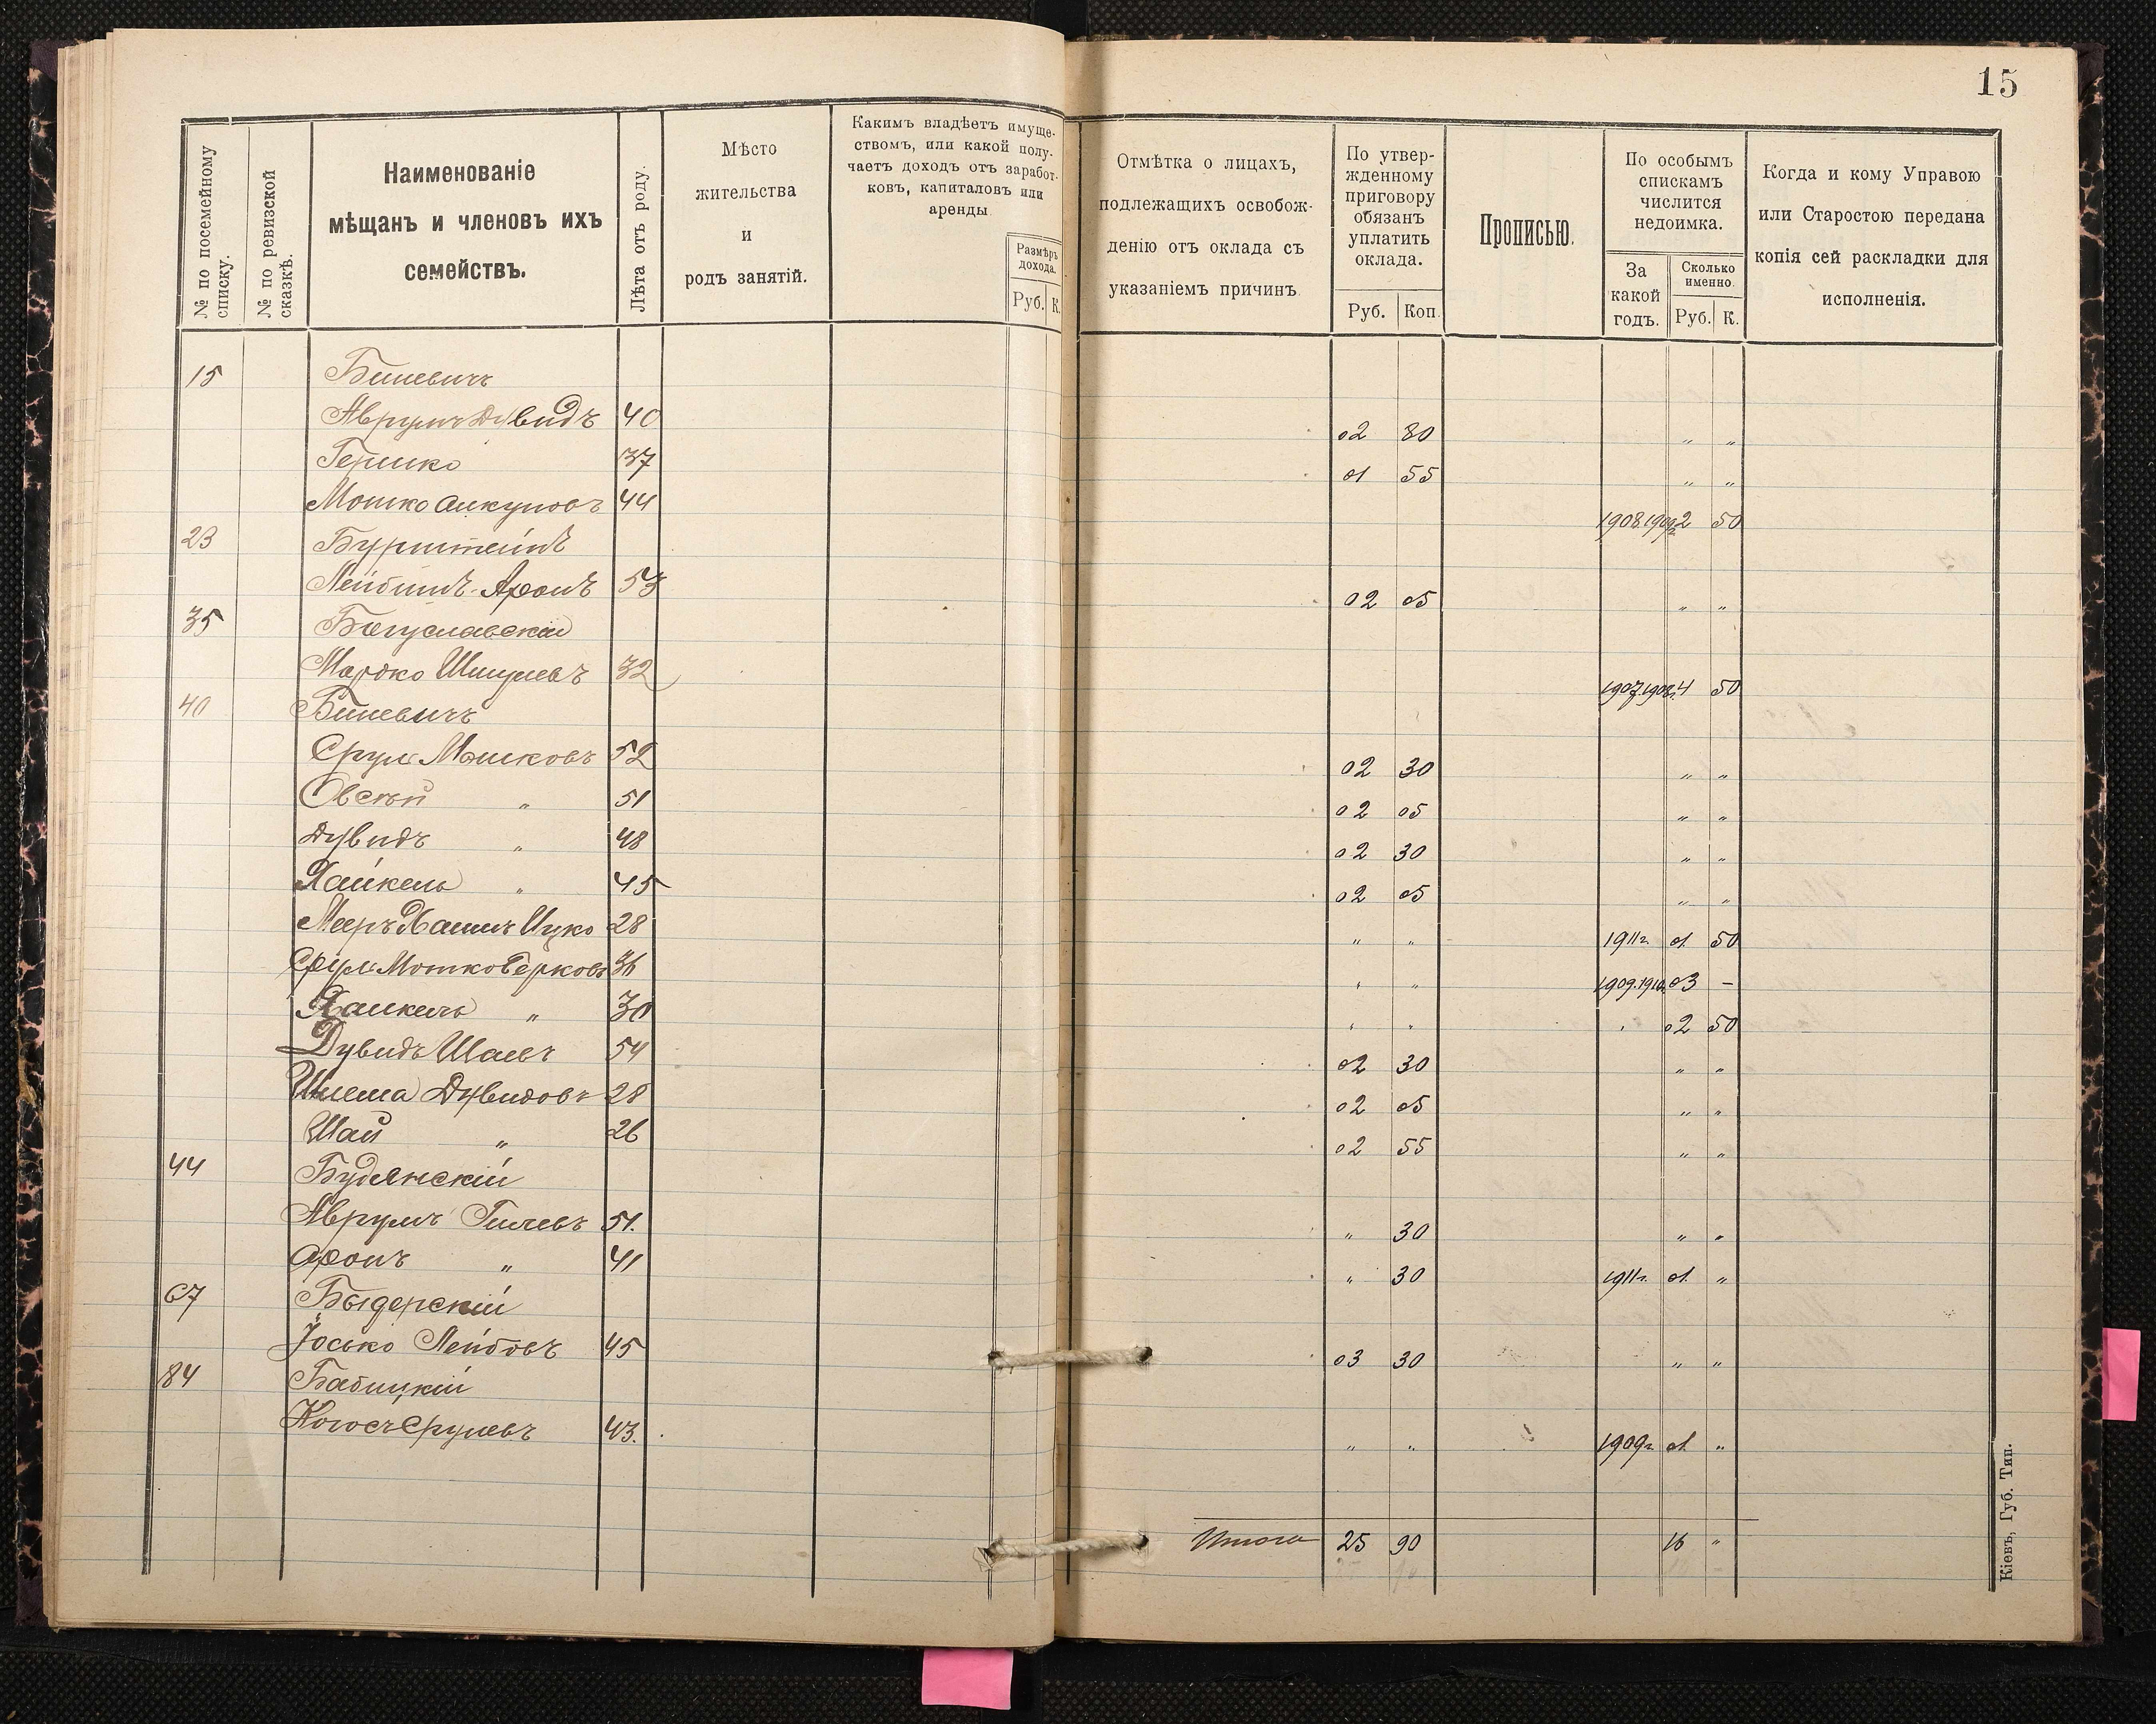 15
№ по посемейному списку.
№ по ревизской сказкѣ.
Наименованіе
мѣщанъ и членовъ ихъ
семействъ.
Лѣта отъ роду.
Мѣсто
жительства
и
родъ занятій.
Какимъ владѣетъ имуще-
ствомъ, или какой полу-
чаетъ доходъ отъ заработ-
ковъ, капиталовъ или
аренды
Размѣръ
дохода.
Руб. К.
Отмѣтка о лицахъ,
подлежащихъ освобож-
денію отъ оклада съ
указаніемъ причинъ
По утвер-
жденному
приговору
обязанъ
уплатить
оклада.
Руб. Коп.
Прописью.
По особымъ
спискамъ
числится
недоимка.
За
какой
годъ.
Сколько
именно.
Руб. К.
Когда и кому Управою
или Старостою передана
копія сей раскладки для
исполненія.
15 Биневичъ
Аврумъ Дувидъ 40 02 80 " "
Гершко 37 01 55 " "
Мошко 44 1908.1909г. 2 50
23 Бурштейнъ
Лейбишъ-Аронъ 53 02 05 " "
35 Богуславскій
Мордко Шмулевъ 32 1907.1908г. 4 50
40 Биневичъ
Срулъ Мошковъ 52 02 30 " "
Овсѣй " 51 02 05 " "
Дувидъ " 48 02 30 " "
Хайкель " 45 02 05 " "
Мееръ Хаимъ Ицко 28 " " 1911г. 01. 50
Срулъ Мошко Герковъ 36 " " 1909.1910г. 03 –
Хаикель " 30 " " " 02 50
Дувидъ Шаевъ 54 02 30 " "
Шлема Дувидовъ 28 02 05 " "
Шай " 26 02 55 " "
44 Будянскій
Аврумъ Гилевъ 51. " 30 " "
Аронъ " 41 " 30 1911г. 01. "
67 Быдерскій
Йосько Лейбовъ 45 03 30 " "
84 Бабицкій
Срулевъ 43. " " 1909г. 01. "
Итого 25 90 16 "
Кіевъ, Губ. Тип.